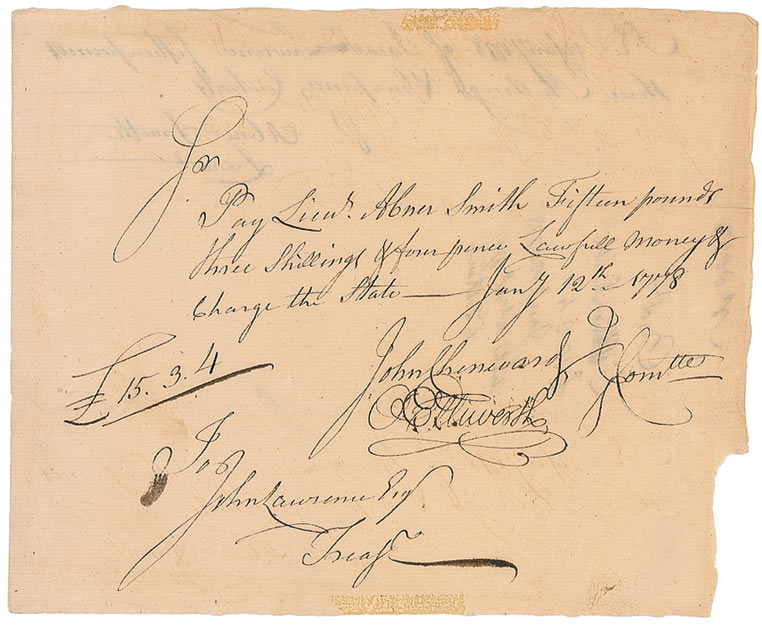 Sir
Pay Lieut. Abner Smith Fifteen pounds
three Shillings & four pence Lawfull Money &
Charge the State — Jany 12th 1778
£15.3.4
John Chenward } Comttee
O Ellsworth
To
John Lawrence Esqr
Treasr